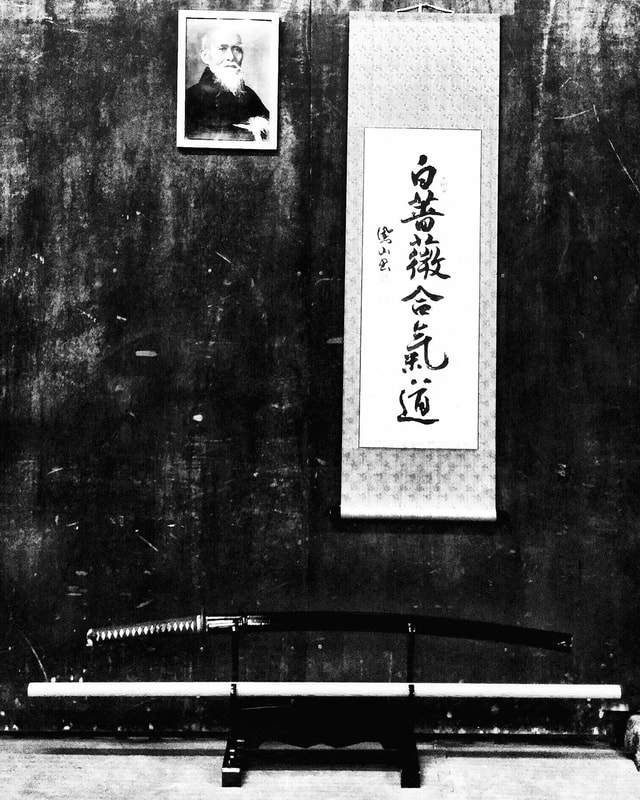 白薔薇合氣道